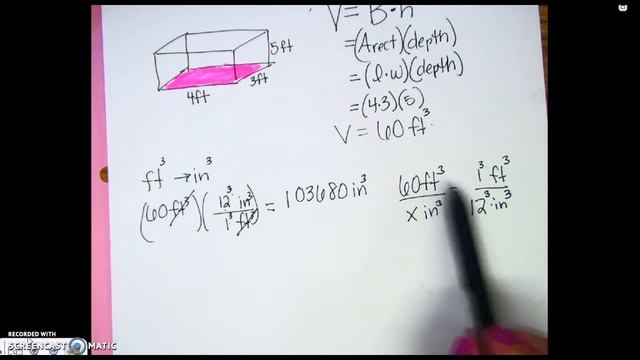 V = B·h
= (Arect)(depth)
= (l·w)(depth)
= (4·3)(5)
V = 60 ft³
5ft
3ft
4ft
ft³ → in³
(60ft³)(12³ in³ / 1³ ft³) = 103680 in³
60ft³ / x in³ = 1³ ft³ / 12³·in³
RECORDED WITH
SCREENCAST MATIC